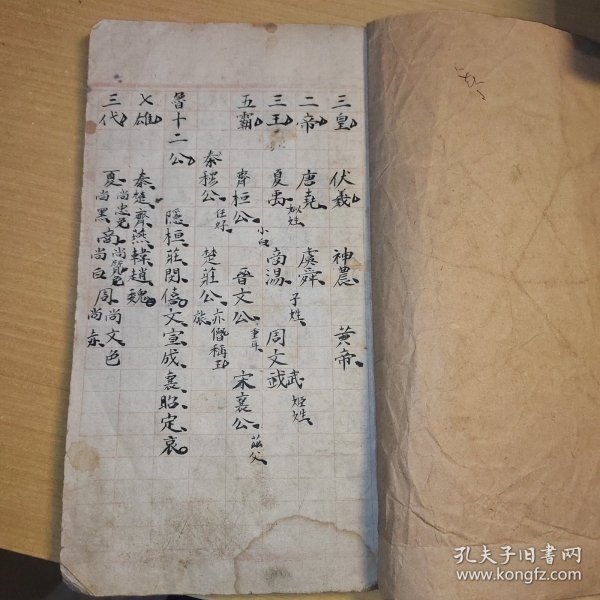 三皇 伏羲 神農 黃帝
二帝 唐堯 虞舜
三王 夏禹 姒姓 商湯 子姓 周文武 武 姬姓
五霸 齊桓公 小白 晉文公 重耳 宋襄公 茲父
秦穆公 任好 楚莊公 旅 亦僭稱王
魯十二公 隱桓莊閔僖文宣成襄昭定哀
七雄 秦楚齊燕韓趙魏
三代 夏 尚忠 尚黑 商 尚質 尚白 周 尚文 尚赤
孔夫子旧书网
www.kongfz.com